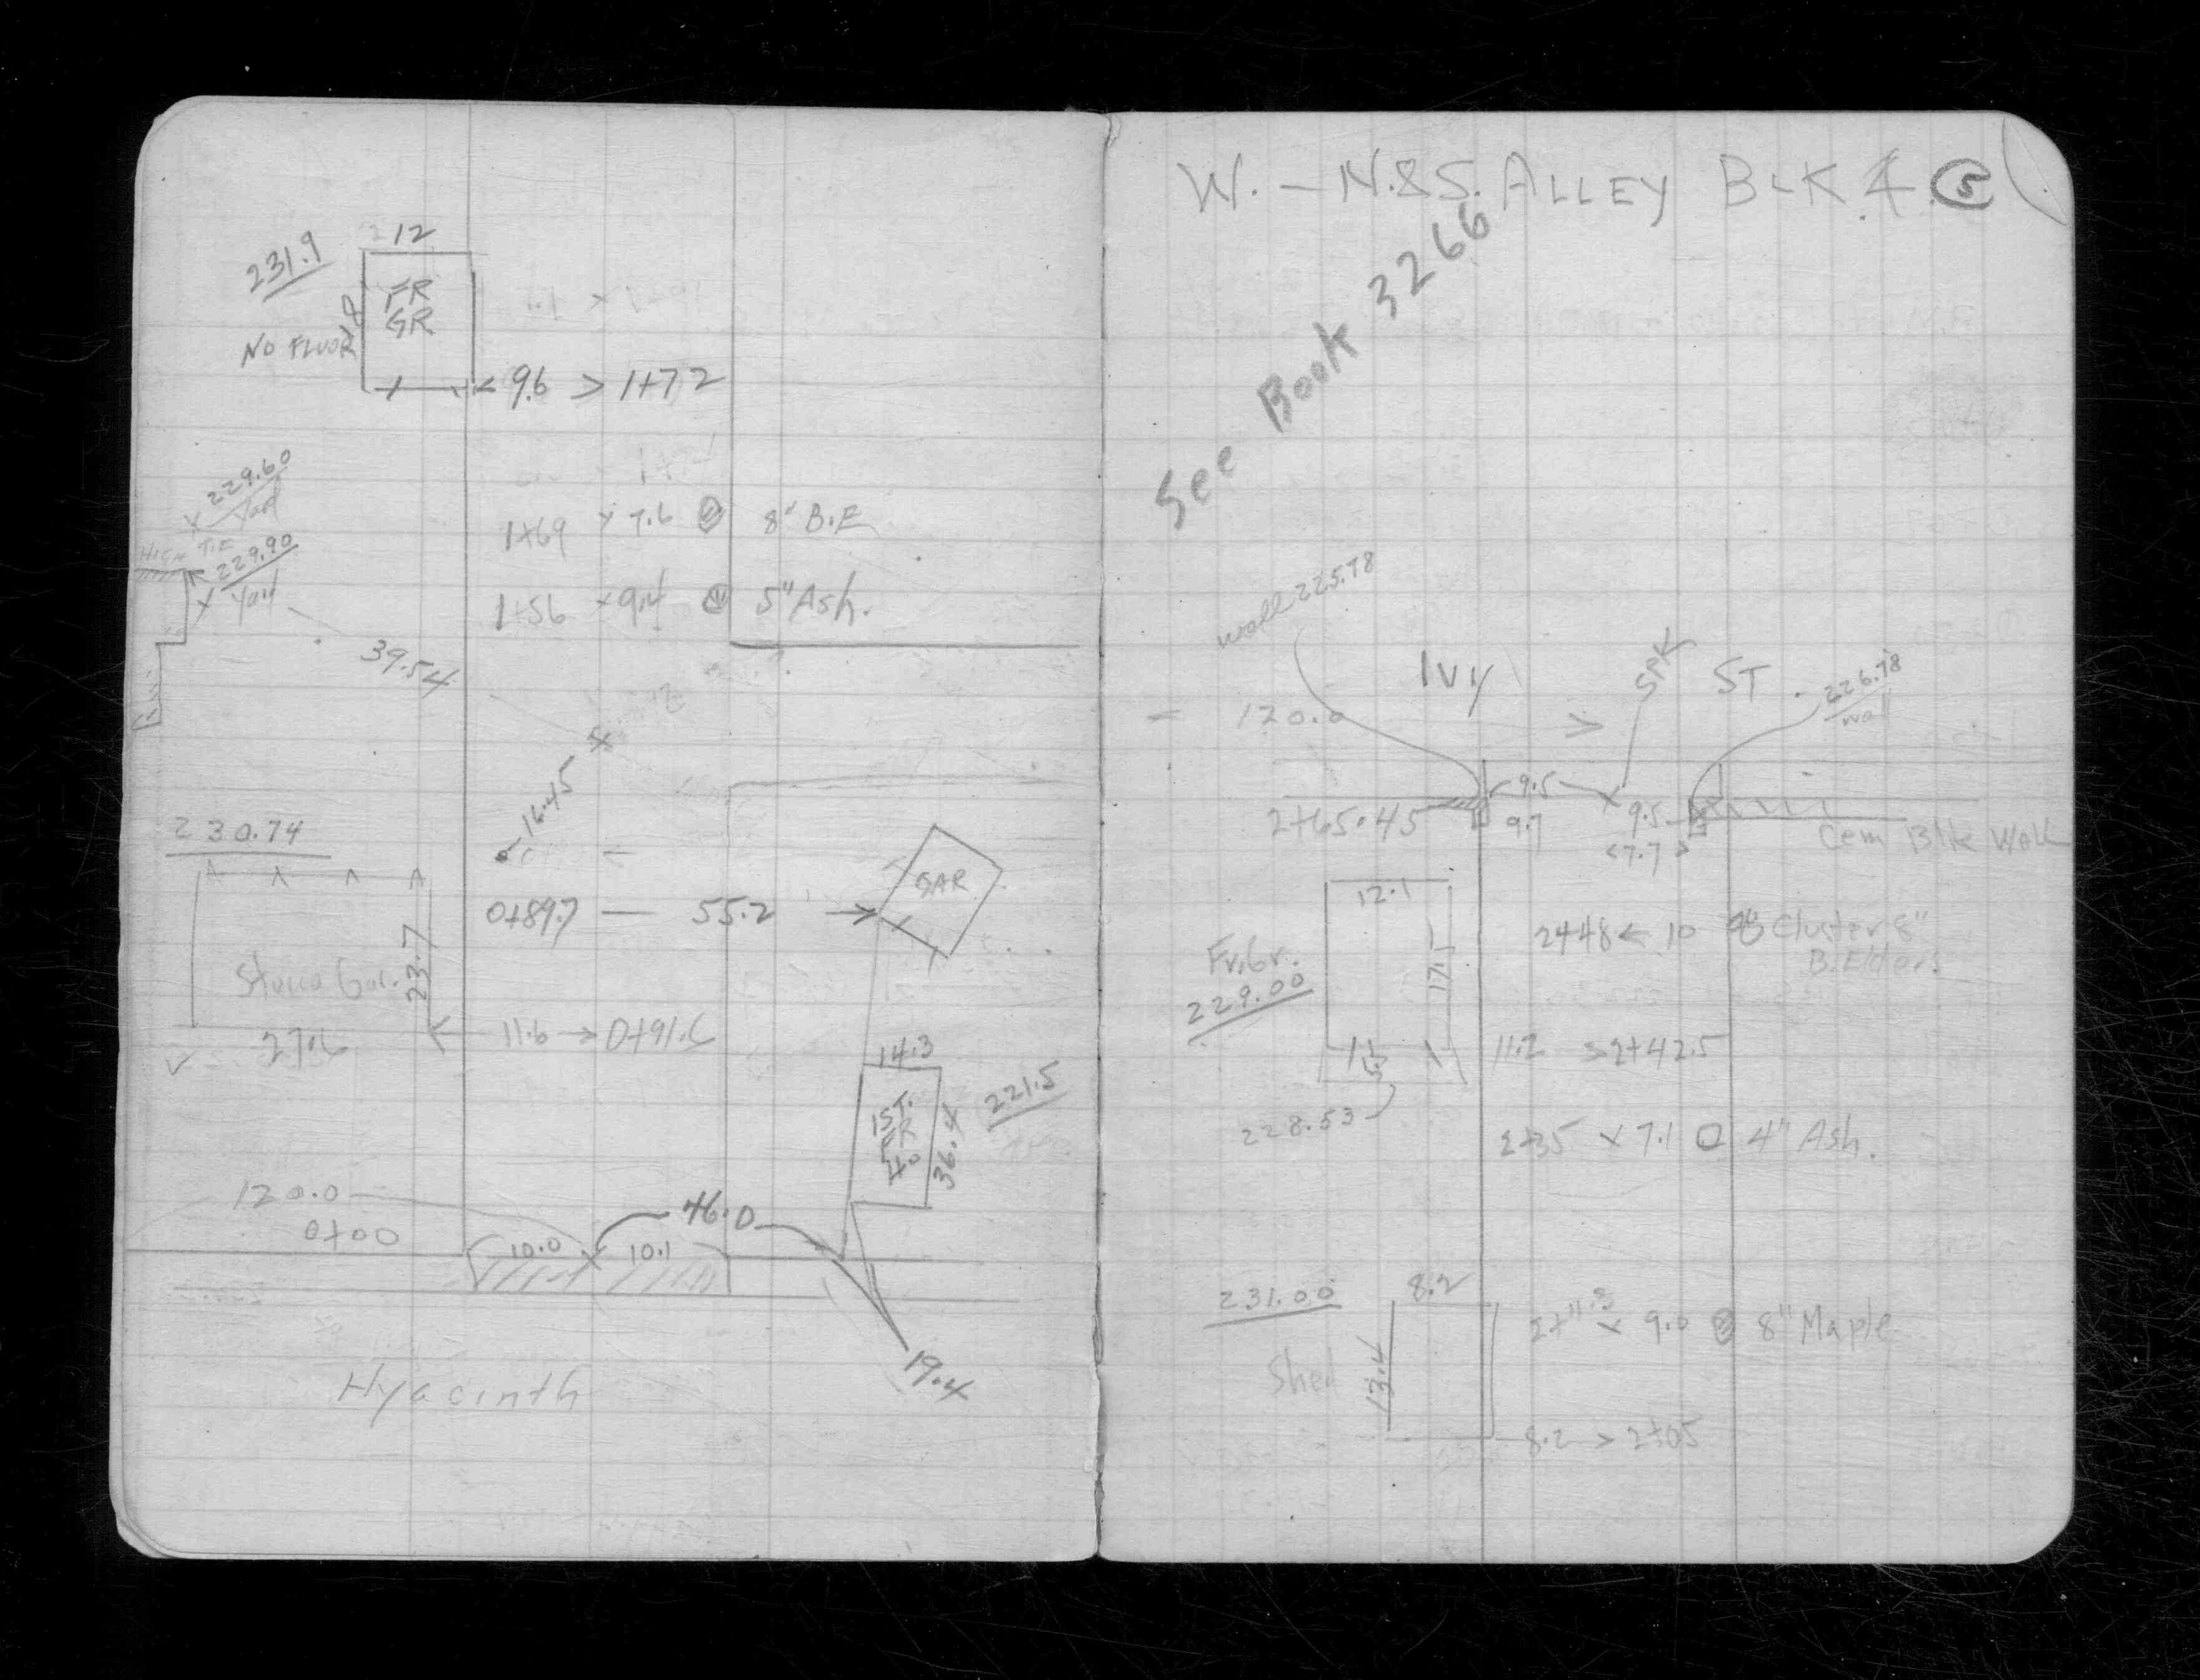 12
231.9
FR
GR
18
NO FLUOR
< 9.6 > 1+72
229.60
Yard
1+69 × 7.6 8" B.E
HIGH TIE
229.90
Yard
1+56 × 9.4 5" Ash.
39.54
16.45
230.74
GAR
0+89.7 — 55.2
23.7
Stucco Gar.
27.6
11.6 → 0+91.6
14.3
1 ST.
FR
Ho
36.4
221.5
120.0
0+00
46.0
10.0 10.1
19.4
Hyacinth
W. — N. & S. ALLEY BLK. 4 5
See Book 3266
wall 225.78
IVY ST
SPK
226.78
wal
120.0 >
2+65.45
9.5
9.7
9.5
<7.7>
Cem Blk Wall
12.1
Fr. Gr.
229.00
17.1
2+48 ← 10 Cluster 8"
B. Elders
11.2 > 2+42.5
5.5
228.53
2+35 × 7.1 4" Ash.
231.00
8.2
2+11.3 × 9.0 8" Maple
Shed
13.4
8.2 > 2+05